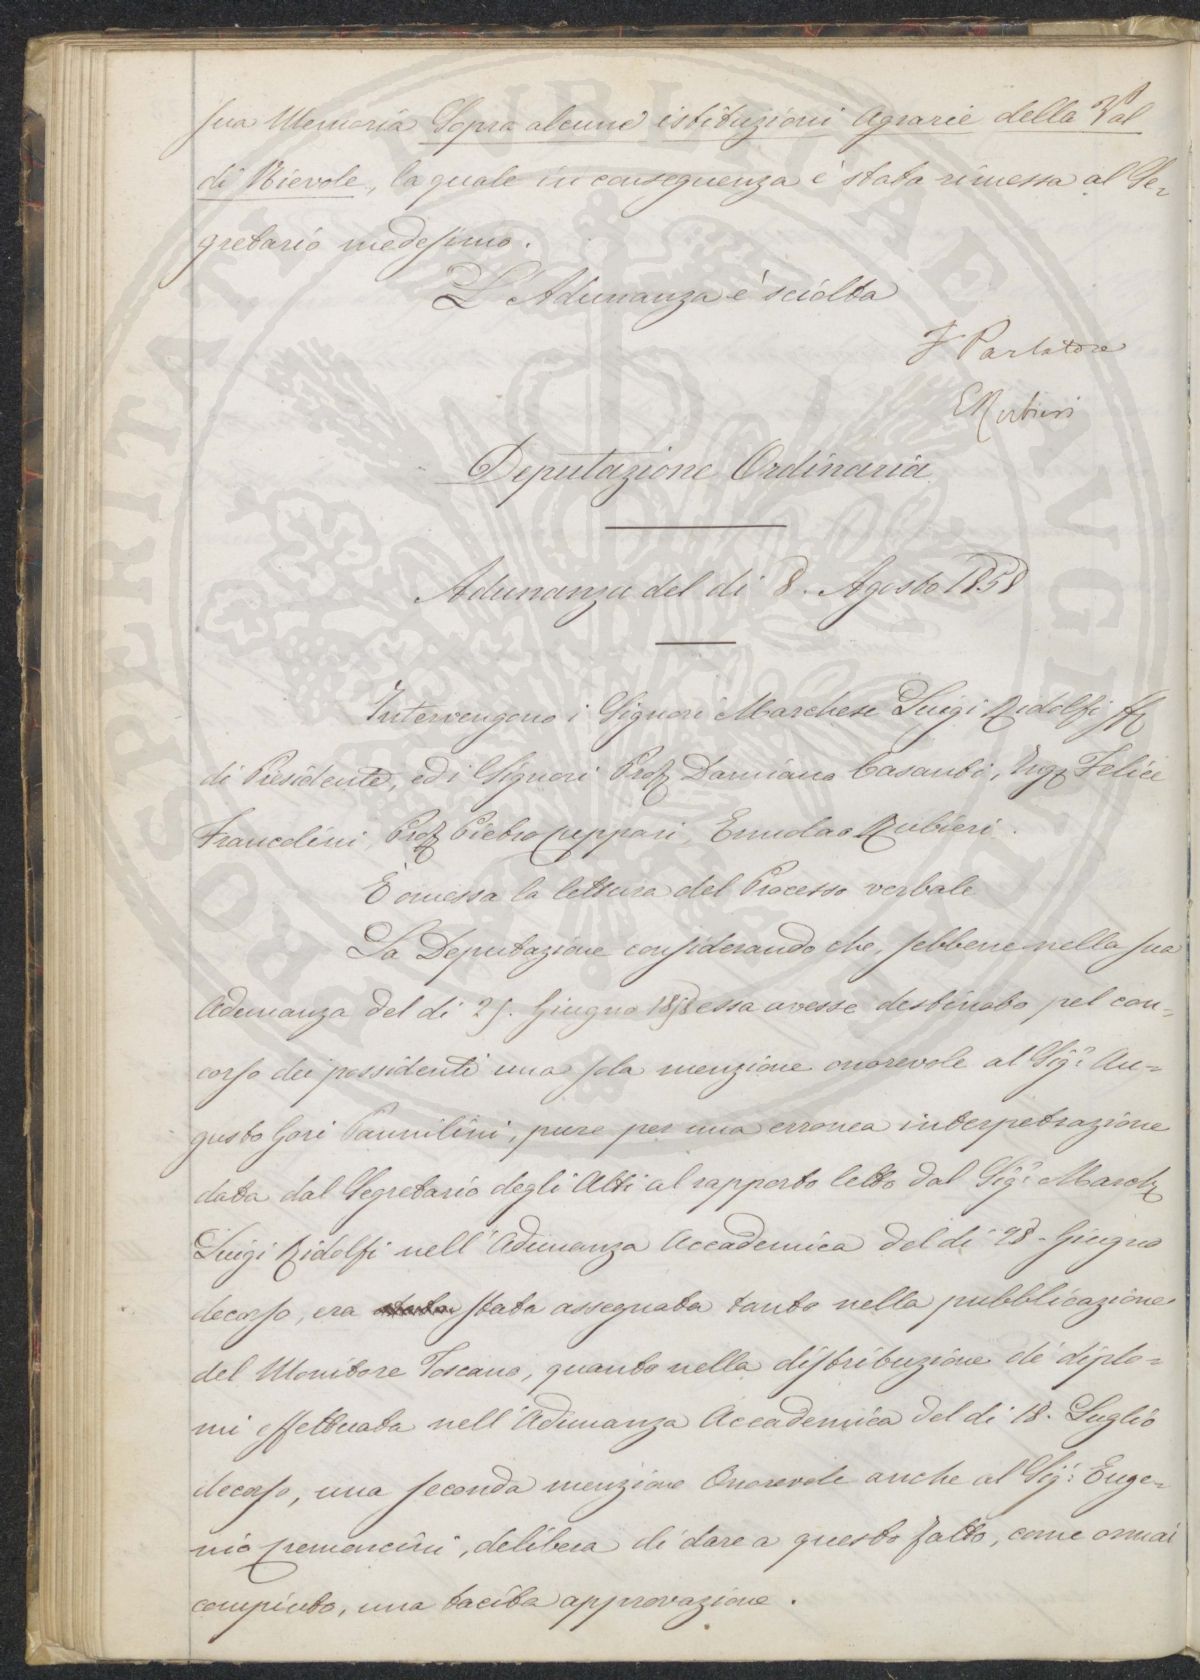 sua Memoria Sopra alcune istituzioni Agrarie della Val
di Nievole, la quale in conseguenza è stata rimessa al Se=
gretario medesimo.
L'Adunanza è sciolta
F Parlatore
E Rubieri
Deputazione Ordinaria
Adunanza del di 8. Agosto 1858
Intervengono i Signori Marchese Luigi Ridolfi ff
di Presidente, ed i Signori Prof. Damiano Casanti, Ing. Felice
Francolini, Prof. Pietro Cuppari, Ermolao Rubieri.
È omessa la lettura del Processo verbale
La Deputazione considerando che, sebbene nella sua
Adunanza del di 25. Giugno 1858 essa avesse destinato pel con=
corso dei possidenti una sola menzione onorevole al Sigr. Au=
gusto Gori Pannilini, pure per una erronea interpetrazione
data dal Segretario degli Atti al rapporto letto dal Sigr. March.
Luigi Ridolfi nell'Adunanza Accademica del di 28. Giugno
decorso, era stata assegnata tanto nella pubblicazione
del Monitore Toscano, quanto nella distribuzione de' diplo=
mi effettuata nell'Adunanza Accademica del di 18. Luglio
decorso, una seconda menzione Onorevole anche al Sigr. Euge=
nio, delibera di dare a questo fatto, come ormai
compiuto, una tacita approvazione.
PROSPERITATI PUBLICAE AUGENDAE